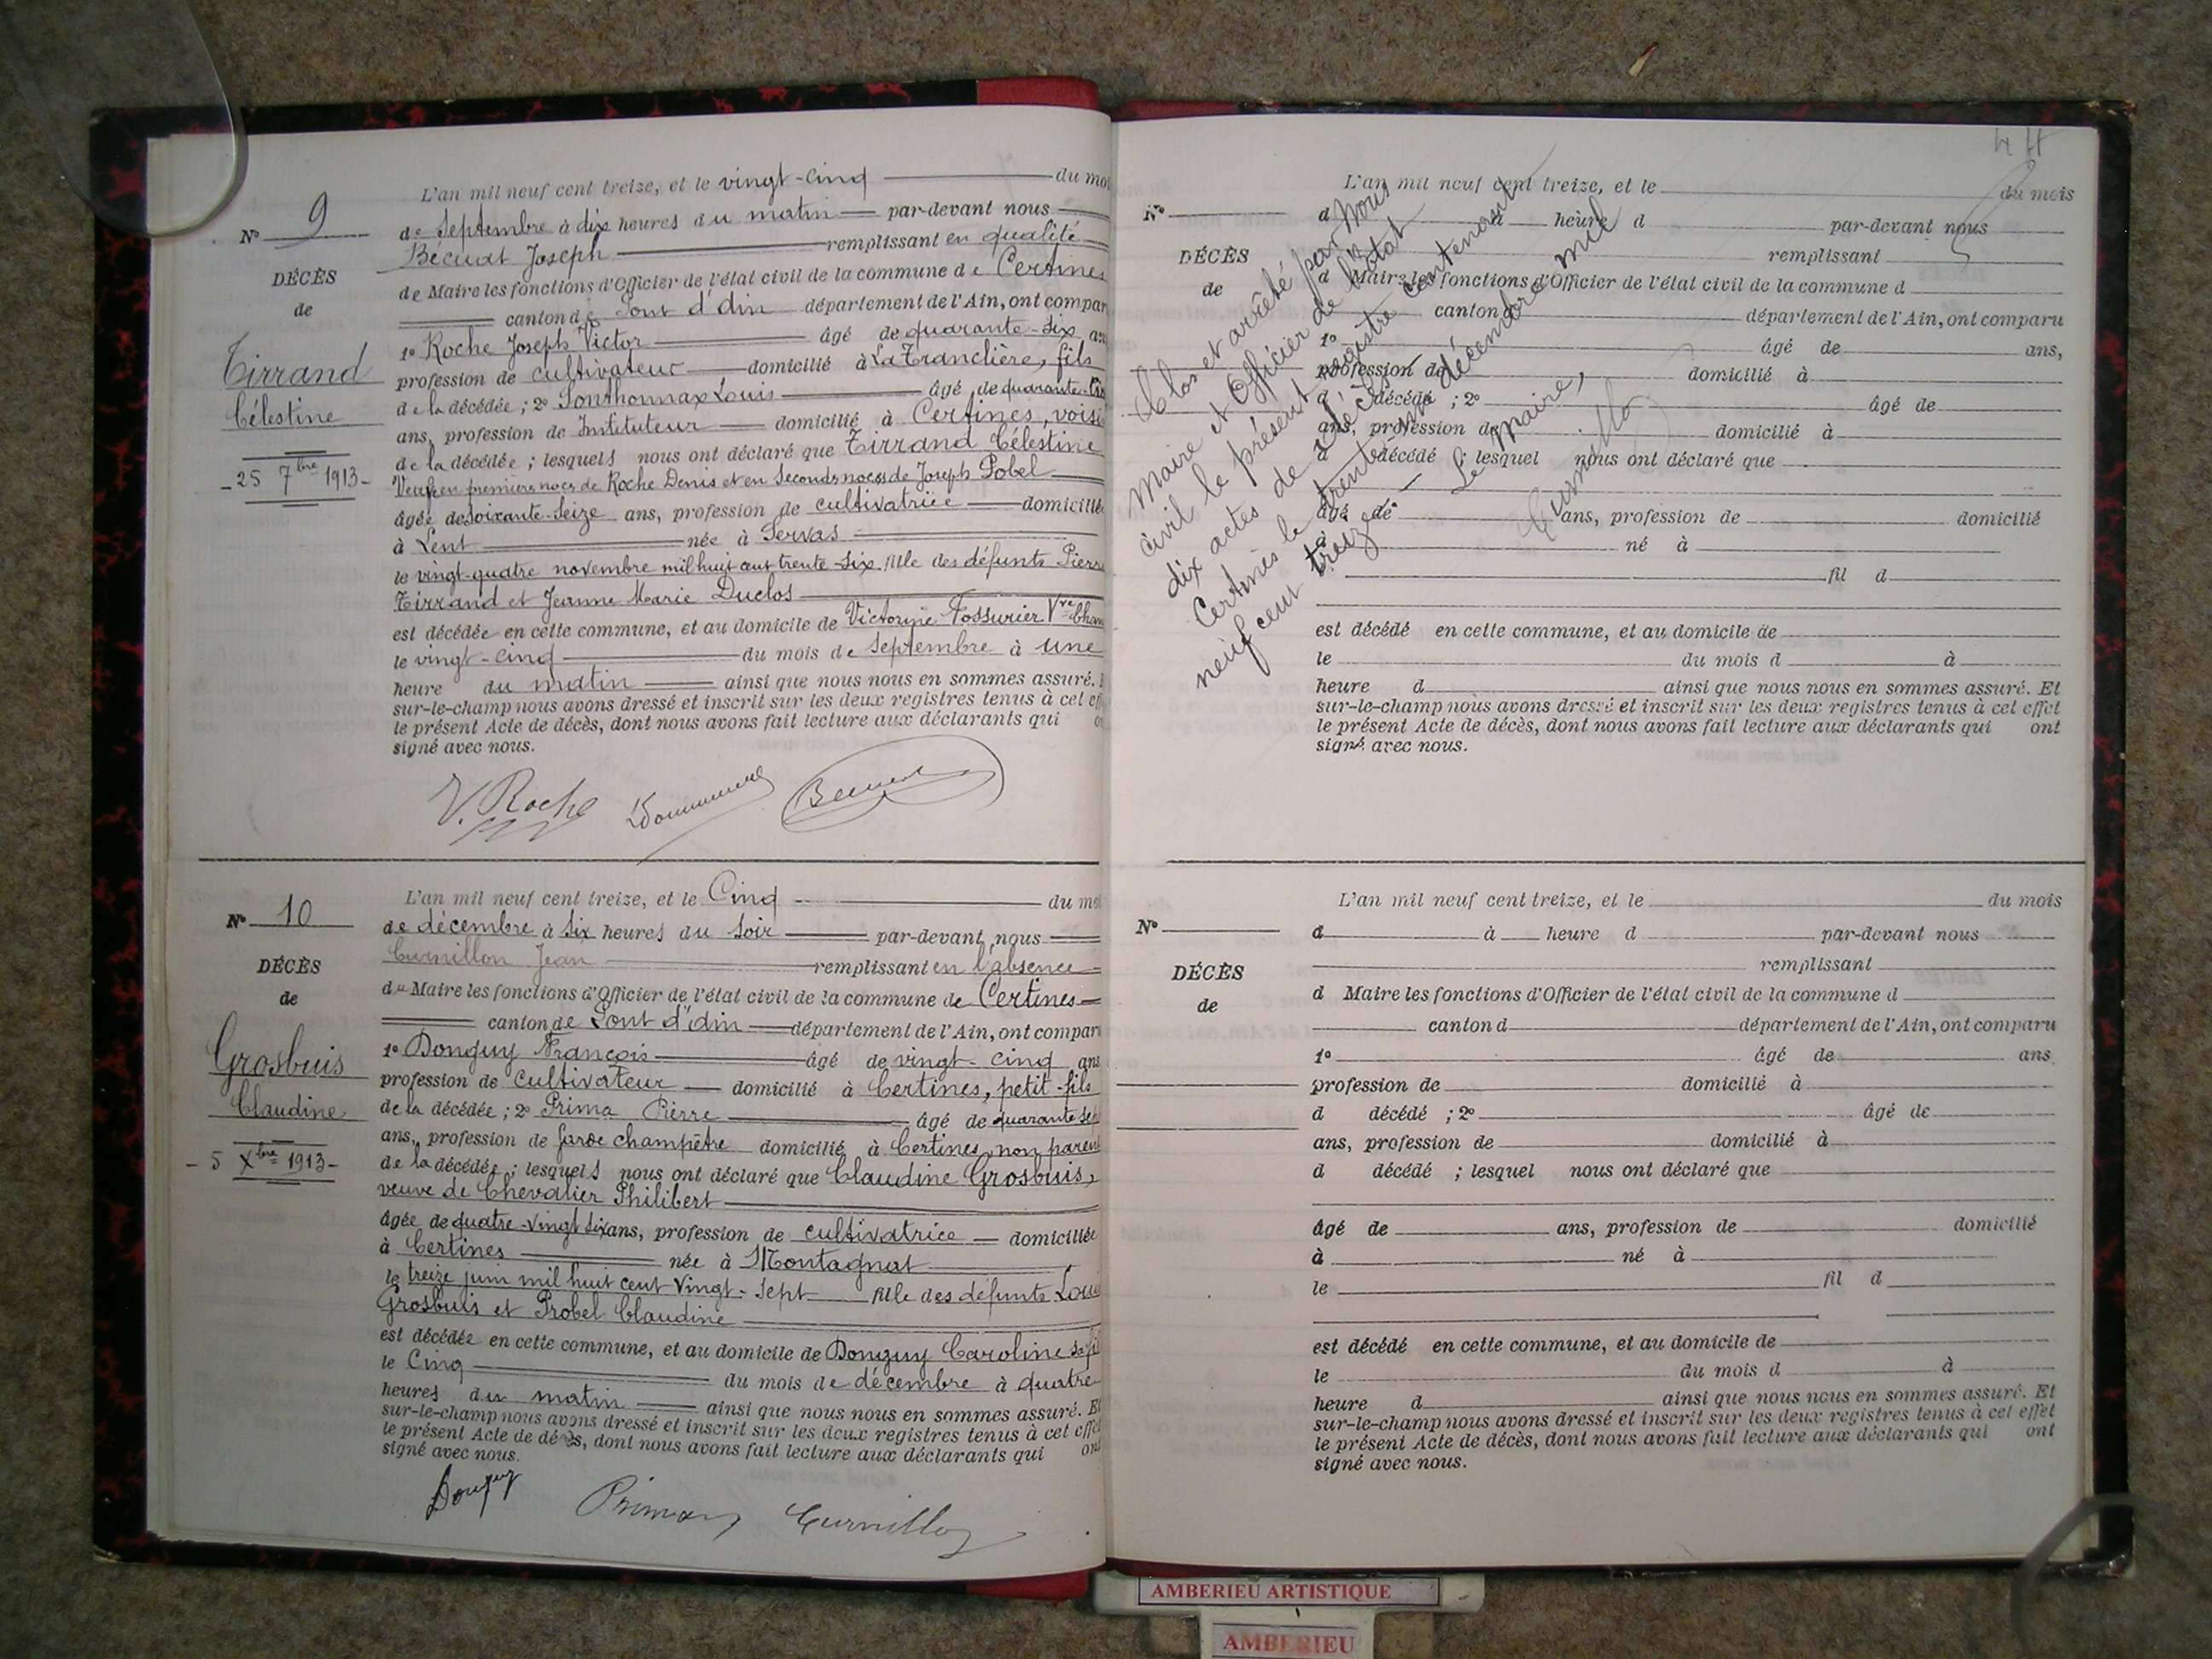 N° 9
DÉCÈS
de
Tirrand
Célestine
- 25 7bre 1913 -
L'an mil neuf cent treize, et le vingt-cinq du moi
de Septembre à dix heures du matin par-devant nous
Bécuat Joseph remplissant en qualité
de Maire les fonctions d'Officier de l'état civil de la commune de Certines
canton de Pont d'Ain département de l'Ain, ont compar
1° Roche Joseph Victor âgé de quarante-six an
profession de cultivateur domicilié à La Tranclière, fils
de la décédée ; 2° Sonthonnax Louis âgé de quarante
ans, profession de Instituteur domicilié à Certines, voisi
de la décédée ; lesquels nous ont déclaré que Tirrand Célestine
Veuve en premières noces de Roche Denis et en Secondes noces de Joseph Pobel
âgée de soixante-seize ans, profession de cultivatrice domicilié
à Lent née à Servas
le vingt-quatre novembre mil huit cent trente-six fille des défunts Pierre
Tirrand et Jeanne Marie Duclos
est décédée en cette commune, et au domicile de Victorine Fossurier Vve
le vingt-cinq du mois de Septembre à une
heure du matin ainsi que nous nous en sommes assuré.
sur-le-champ nous avons dressé et inscrit sur les deux registres tenus à cet eff
le présent Acte de décès, dont nous avons fait lecture aux déclarants qui o
signé avec nous.
V. Roche
N° 10
DÉCÈS
de
Grosbuis
Claudine
- 5 Xbre 1913 -
L'an mil neuf cent treize, et le Cinq du mo
de décembre à six heures du soir par-devant nous
Curnillon Jean remplissant en l'absence
du Maire les fonctions d'Officier de l'état civil de la commune de Certines
canton de Pont d'Ain département de l'Ain, ont compar
1° Donguy François âgé de vingt-cinq ans
profession de cultivateur domicilié à Certines, petit-fils
de la décédée ; 2° Prima Pierre âgé de quarante sep
ans, profession de garde champêtre domicilié à Certines, non parent
de la décédée ; lesquels nous ont déclaré que Claudine Grosbuis,
veuve de Chevalier Philibert
âgée de quatre-vingt six ans, profession de cultivatrice domiciliée
à Certines née à Montagnat
le treize juin mil huit cent vingt-sept fille des défunts Loui
Grosbuis et Probel Claudine
est décédée en cette commune, et au domicile de Donguy Caroline sa fil
le Cinq du mois de décembre à quatre
heures du matin ainsi que nous nous en sommes assuré. Et
sur-le-champ nous avons dressé et inscrit sur les deux registres tenus à cet effet
le présent Acte de décès, dont nous avons fait lecture aux déclarants qui ont
signé avec nous.
Donguy Prima Curnillon
L'an mil neuf cent treize, et le du mois
N° d à heure d par-devant nous
DÉCÈS
de
remplissant
d Maire les fonctions d'Officier de l'état civil de la commune d
canton d département de l'Ain, ont comparu
1° âgé de ans,
profession de domicilié à
d décédé ; 2° âgé de
ans, profession de domicilié à
d décédé ; lesquel nous ont déclaré que
âgé de ans, profession de domicilié
à né à
fil d
est décédé en cette commune, et au domicile de
le du mois d à
heure d ainsi que nous nous en sommes assuré. Et
sur-le-champ nous avons dressé et inscrit sur les deux registres tenus à cet effet
le présent Acte de décès, dont nous avons fait lecture aux déclarants qui ont
signé avec nous.
Clos et arrêté par Nous
Maire et Officier de l'Etat
civil le présent registre contenant
dix actes de décès
Certines le trente et un décembre mil
neuf cent treize
Le Maire,
Curnillon
L'an mil neuf cent treize, et le du mois
N° d à heure d par-devant nous
DÉCÈS
de
remplissant
d Maire les fonctions d'Officier de l'état civil de la commune d
canton d département de l'Ain, ont comparu
1° âgé de ans
profession de domicilié à
d décédé ; 2° âgé de
ans, profession de domicilié à
d décédé ; lesquel nous ont déclaré que
âgé de ans, profession de domicilié
à né à
le fil d
est décédé en cette commune, et au domicile de
le du mois d à
heure d ainsi que nous nous en sommes assuré. Et
sur-le-champ nous avons dressé et inscrit sur les deux registres tenus à cet effet
le présent Acte de décès, dont nous avons fait lecture aux déclarants qui ont
signé avec nous.
AMBERIEU ARTISTIQUE
AMBERIEU